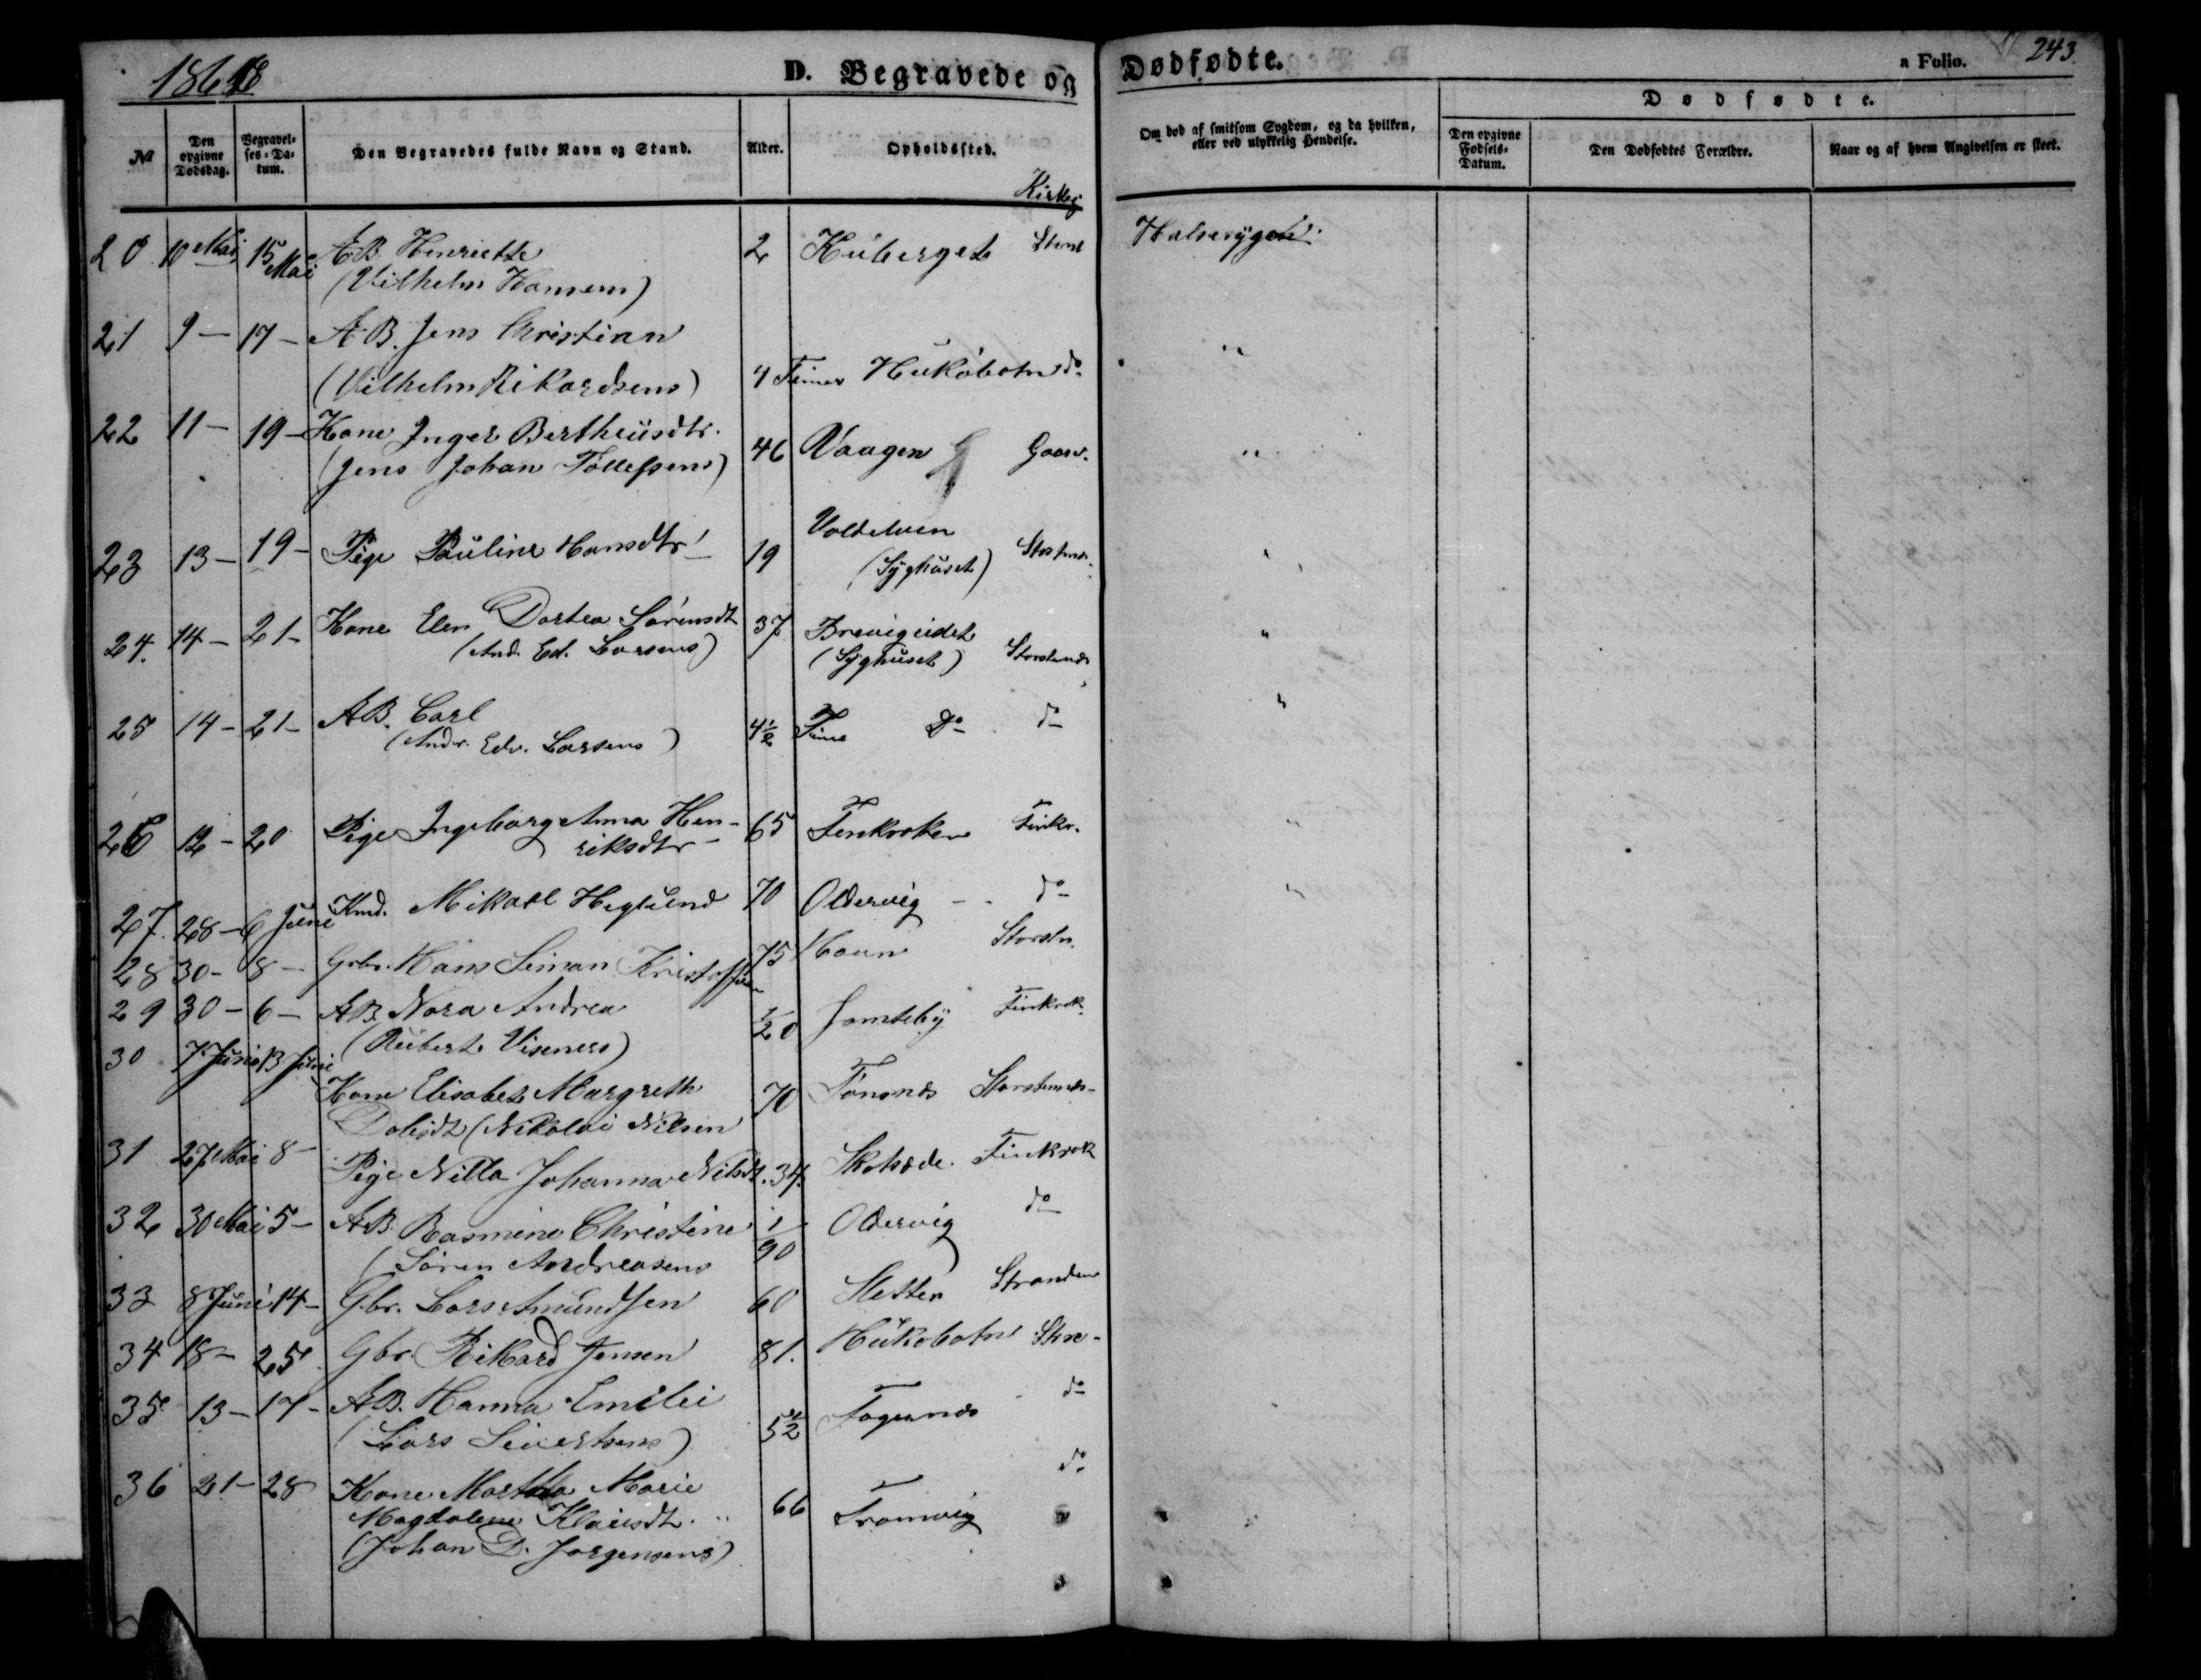 1868
D. Begravede og
Dødfødte.
a Folio.
243
№
Den opgivne Dødsdag.
Begravelses-Datum.
Den Begravedes fulde Navn og Stand.
Alder.
Opholdssted.
Kirkeg
Om død af smitsom Sygdom, og da hvilken, eller ved ulykkelig Hendelse.
Dødfødte.
Den opgivne Fødsels-Datum.
Den Dødfødtes Forældre.
Naar og af hvem Angivelsen er skeet.
20 10 Mai 15 Mai AB. Henriette 2 Storst Halsesygen
(Vilhelm Hansens)
21 9 – 17 – AB. Jens Christian
(Vilhelm Rikardsens) 4 Timer Hukøbotn do "
22 11 – 19 – Kone Inger Bertheüsdtr.
(Jens Johan Tollefsens) 46 Vaagen Gaasv. "
23 13 – 19 – Pige Pauline Hansdtr 19 Voldelven
(Syghuset) Storstnæs "
24. 14 – 21 – Kone Elen Dortea Sørensdt 37 Breivigeidet
(And. Ed. Larsens) (Syghuset) Storstnæs "
25 14 – 21 – AB. Carl
(Andr. Edv. Larsens) 4½ Time Do do "
26 12 – 20 Pige Ingeborg Anna Hen-
riksdtr – 65 Finkroken Finkr. "
27. 28 – 6 Juni Kmd. Mikael Heglund 70 Oldervig – do "
28 30 – 8 – Gbr. Hans Simon Kristoffersen 75 Havn Storstn.
29 30 – 6 – AB Nora Andrea
(Reiberts Viseners) 1/20 Jamteby Finkrok
30 7 Juni 13 Juni
Kone Elisabet Margreth 70 Tønsnæs Storstennæs
(Nikolai Nilsen
31 27 Mai 8 – Pige Nilla Johanna Nilsdt. 34. Finkrok
32 30 Mai 5 – AB Rasmine Christine 1/90 Oldervig do
(Søren Andreasens
33 8 Juni 14 – Gbr. Lars Amundsen 60 Sletten Stranden
34 18 – 25 Gbr. Rikard Jensen 81. Hukobotn
35 13 – 17 – AB. Hanna Emilei
(Lars Sivertsens) 5½ Fagernæs do
36 21 – 28 Kone Martha Marie
Magdalene Klausdt. 66 Tromvig do
(Johan D. Jørgensens)